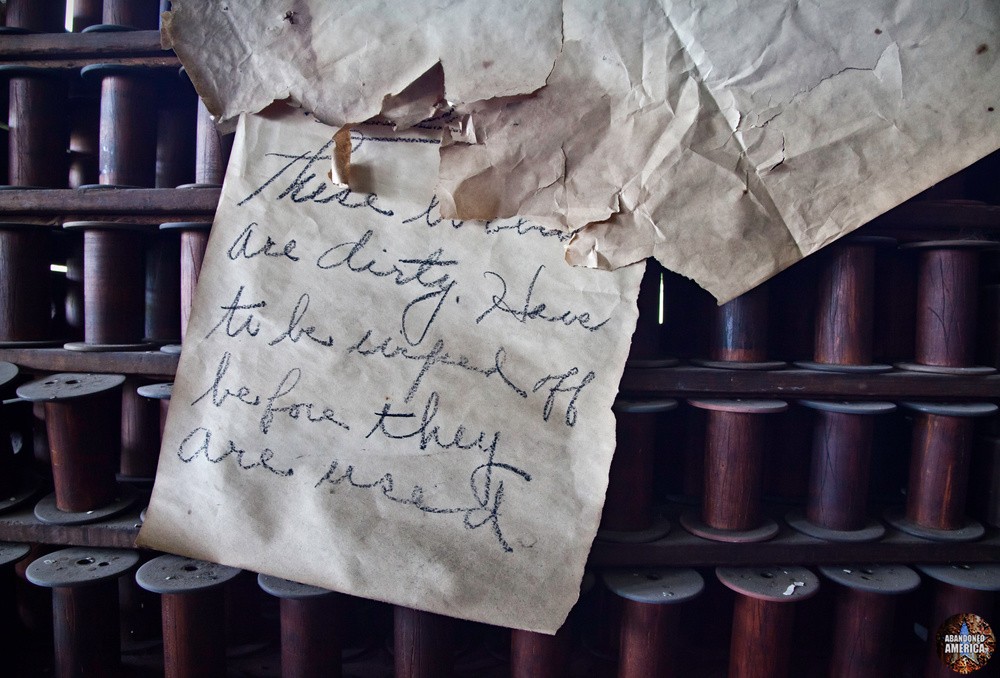 These
are dirty. Have
to be wiped off
before they
are used
ABANDONED
AMERICA